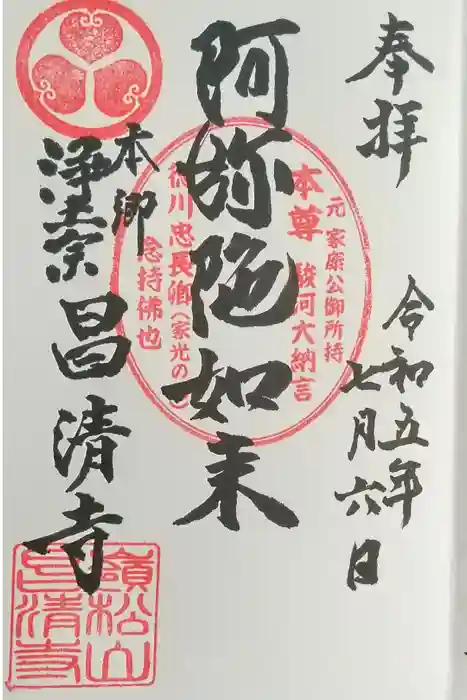 奉拝
令和五年
七月六日
阿弥陀如来
元 家康公御所持
本尊 駿河大納言
徳川忠長卿(家光の
念持佛也
本郷
浄土宗
昌清寺
嶺松山
昌清寺